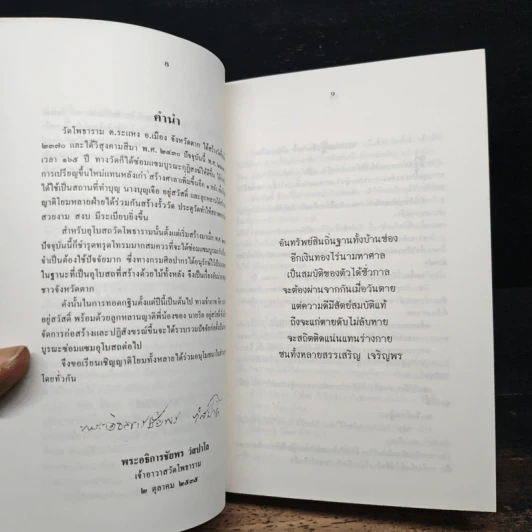 ๘
คำนำ
วัดโพธาราม ต.ระแหง อ.เมือง จังหวัดตาก ได้สร้างขึ้นเมื่อ
๒๓๗๐ และได้วิสุงคามสีมา พ.ศ. ๒๔๓๐ ปัจจุบันนี้ พ.ศ.
เวลา ๑๖๕ ปี ทางวัดก็ได้ซ่อมแซมบูรณะกุฏิสงฆ์ได้ขึ้น
การเปรียญขึ้นใหม่แทนหลังเก่า สร้างศาลาเพิ่มขึ้นอีก ๑ หลัง
ได้ใช้เป็นสถานที่ทำบุญ นางบุญเจือ อยู่สวัสดิ์ และลูกหลานได้
ญาติโยมหลายฝ่ายได้ร่วมกันสร้างรั้ววัด ประตูวัดทำให้
สวยงาม สงบ มีระเบียบยิ่งขึ้น
สำหรับอุโบสถวัดโพธารามนั้นตั้งแต่เริ่มสร้างมา
ปัจจุบันนี้ก็ชำรุดทรุดโทรมมากสมควรที่จะได้ซ่อมแซมบูรณะ
จำเป็นต้องใช้ปัจจัยมาก ซึ่งทางกรมศิลปากรได้อนุรักษ์ไว้
ในฐานะที่เป็นอุโบสถที่สร้างด้วยไม้ทั้งหลัง จึงเป็นเรื่อง
ชาวจังหวัดตาก
ดังนั้นในการทอดกฐินตั้งแต่ปีนี้เป็นต้นไป ทางเจ้าภาพ
อยู่สวัสดิ์ พร้อมด้วยลูกหลานญาติพี่น้องของ นายวิด อยู่สวัสดิ์
จัดการก่อสร้างและปฏิสังขรณ์ขึ้นจะได้รวบรวมปัจจัย
บูรณะซ่อมแซมอุโบสถต่อไป
จึงขอเรียนเชิญญาติโยมทั้งหลายได้ร่วมอนุโมทนา
โดยทั่วกัน
พระอธิการชัยพร วัสปาโล
เจ้าอาวาสวัดโพธาราม
๒ ตุลาคม ๒๕๓๕
๙
อันทรัพย์สินถิ่นฐานทั้งบ้านช่อง
อีกเงินทองไร่นามหาศาล
เป็นสมบัติของตัวได้ชั่วกาล
จะต้องผ่านจากกันเมื่อวันตาย
แต่ความดีมีสัตย์สมบัติแท้
ถึงจะแก่ตายดับไม่ลับหาย
จะสถิตติดแน่นแทนร่างกาย
ชนทั้งหลายสรรเสริญ เจริญพร